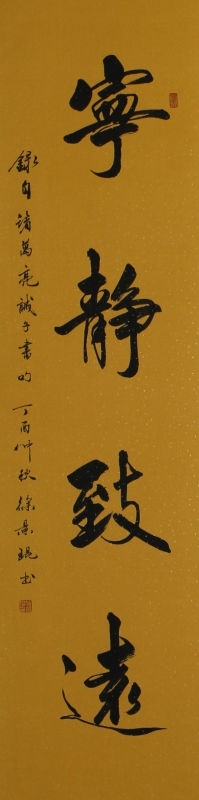 寧靜致遠
錄自諸葛亮誡子書句 丁酉仲秋 徐景琨書